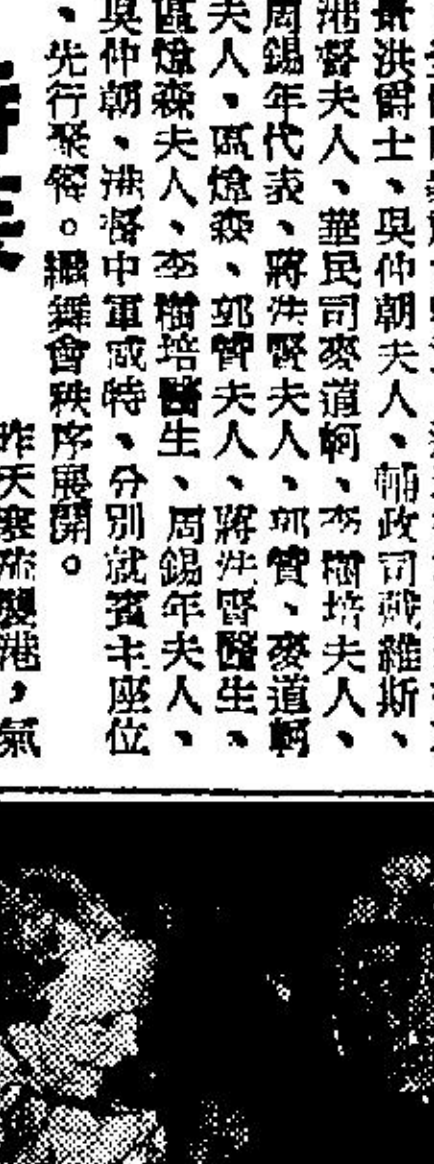 景洪爵士、吳仲朝夫人、輔政司戴維斯、
港督夫人、華民司麥道軻、李樹培夫人、
周錫年代表、蔣法賢夫人、郭贊、麥道軻
夫人、區煒森、郭贊夫人、蔣法賢醫生、
區煒森夫人、李樹培醫生、周錫年夫人、
吳仲朝、港督中軍威特、分別就賓主座位
、先行聚餐。繼舞會秩序展開。
昨天寒流襲港，氣